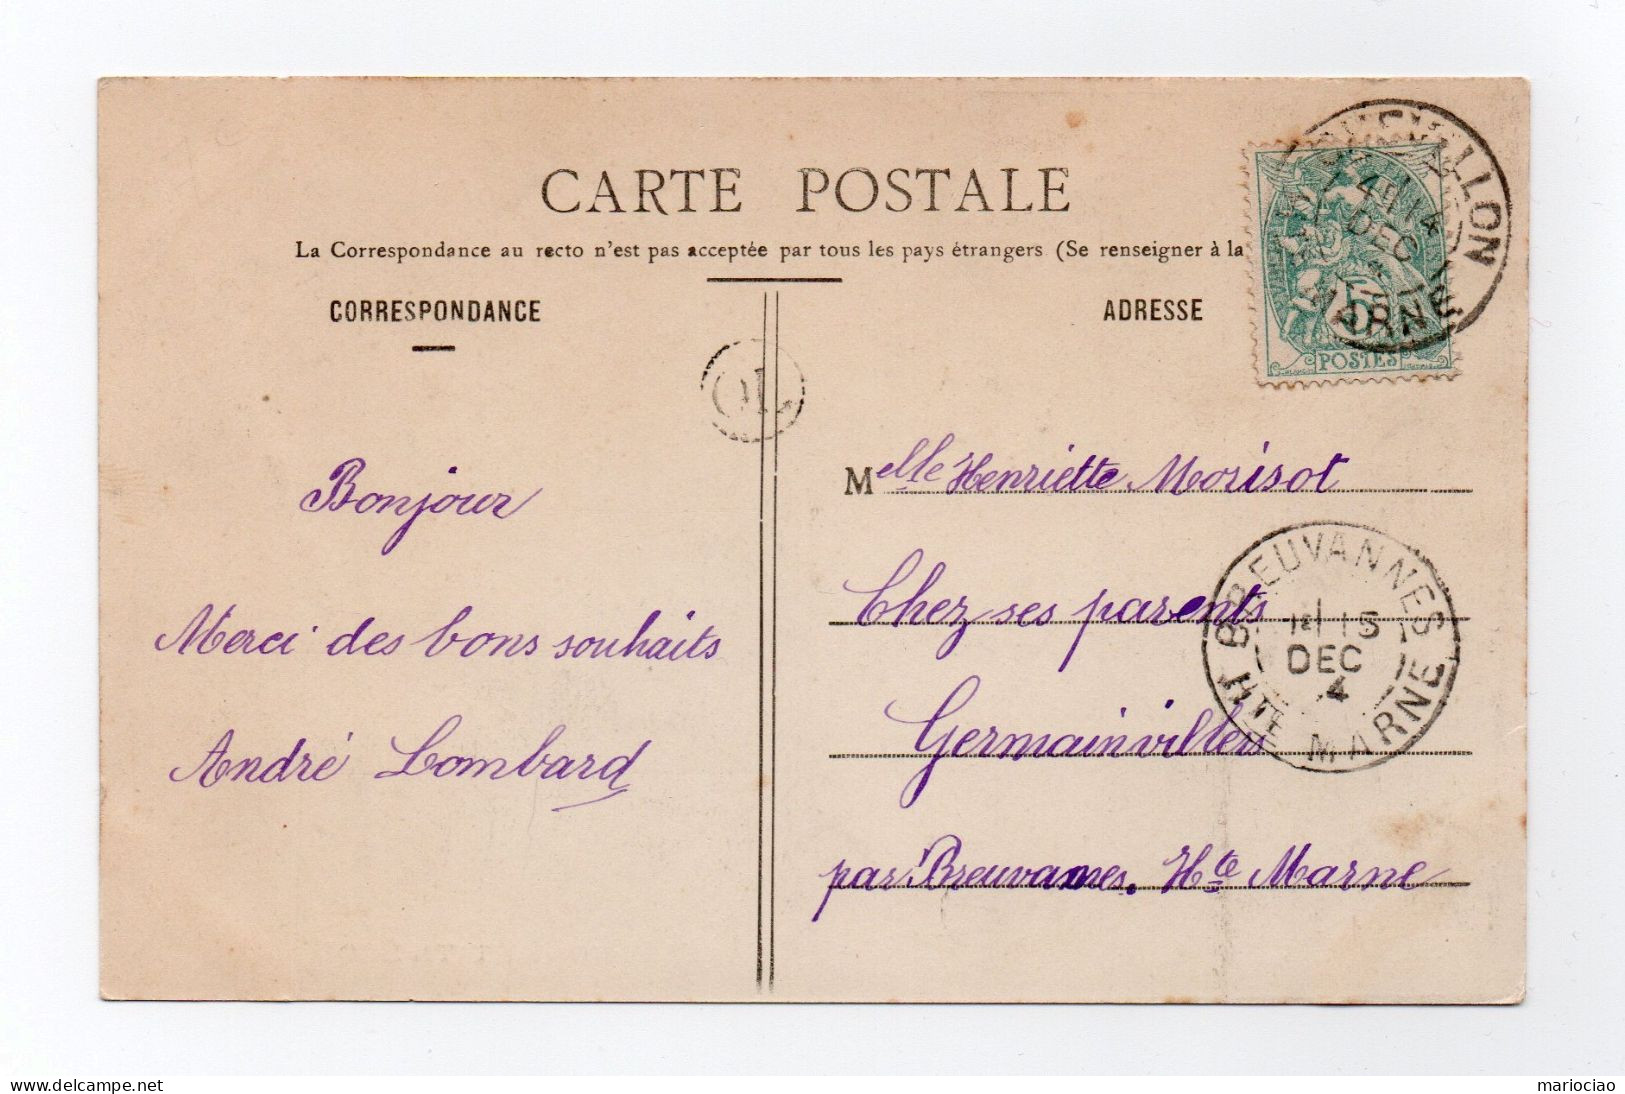 CARTE POSTALE
La Correspondance au recto n'est pas acceptée par tous les pays étrangers (Se renseigner à la
CORRESPONDANCE
ADRESSE
5
POSTES
14
DEC
MARNE
OL
Bonjour
Merci des bons souhaits
André Lombard
Melle Henriette Morisot
Chez ses parents
Germainvilliers
par Breuvannes, Hte Marne
BREUVANNES
15
DEC
4
HTE MARNE
mariociao